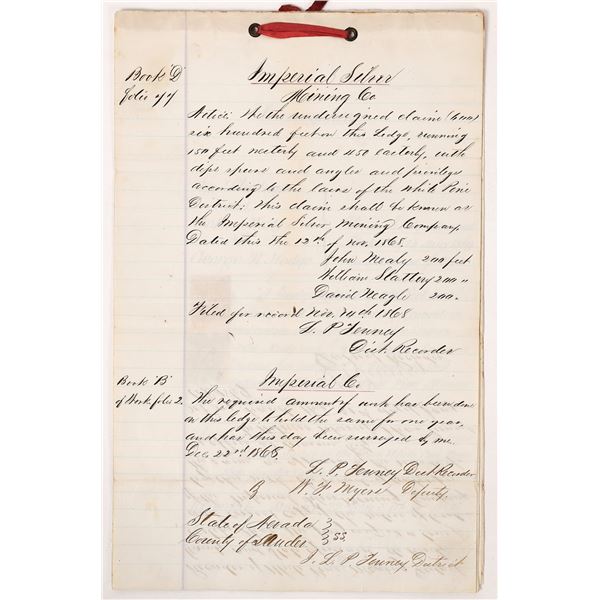 Book "D"
folio 77
Imperial Silver
Mining Co
Notice: We the undersigned claim (600)
six hundred feet on this Ledge, running
150 feet westerly and 450 easterly, with
dips spurs and angles and privileges
according to the laws of the White Pine
District: this claim shall be known as
the Imperial Silver Mining Company
Dated this the 12th of Nov. 1868.
John Mealy 200 feet
William Slattery 200 "
David Neagle 200 "
Filed for record Nov. 14th 1868
L. P. Tenney
Dist. Recorder
Book "B"
of Work folio 2.
Imperial Co.
The required amount of work has been done
on this ledge to hold the same for one year,
and has this day been surveyed by me.
Dec. 22nd 1868.
L. P. Tenney Dist Recorder
By W. F. Myers Deputy
State of Nevada
County of Lander } SS.
I. L. P. Tenney, District